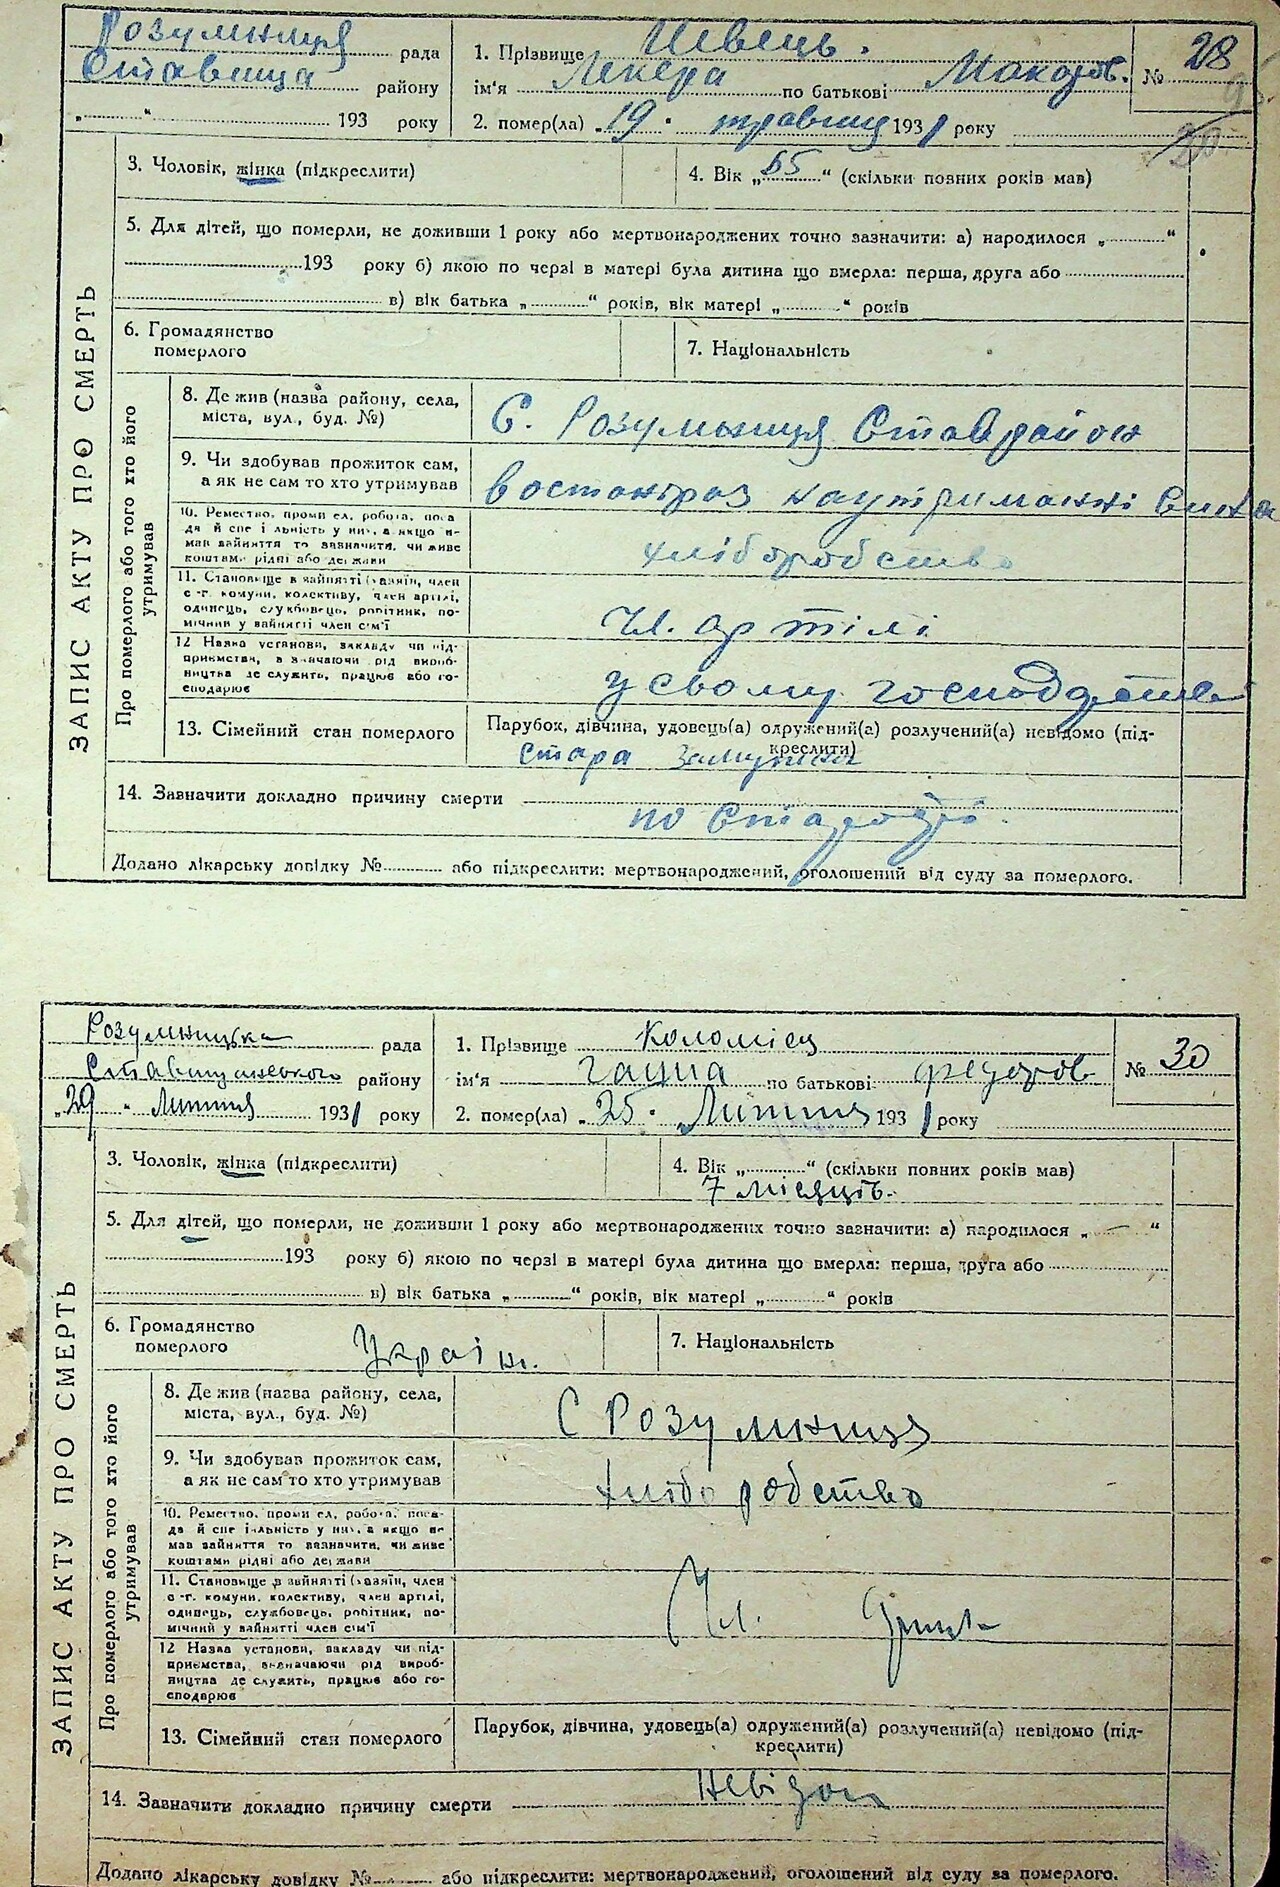 Розумниця рада
Ставища району
„ “ 193 року
1. Прізвище Швець.
ім'я по батькові Макаров.
2. помер(ла) „19. травня 1931 року
№ 28
20
ЗАПИС АКТУ ПРО СМЕРТЬ
3. Чоловік, жінка (підкреслити)
4. Вік „65“ (скільки повних років мав)
5. Для дітей, що померли, не доживши 1 року або мертвонароджених точно зазначити: а) народилося „ “
193 року б) якою по черзі в матері була дитина що вмерла: перша, друга або
в) вік батька „ “ років, вік матері „ “ років
6. Громадянство
померлого
7. Національність
Про померлого або того хто його
утримував
8. Де жив (назва району, села,
міста, вул., буд. №)
С. Розумниця Ставрайон
9. Чи здобував прожиток сам,
а як не сам то хто утримував
востанраз на утриманні сина
10. Ремество, проми ел, робота, поса
да й спе і льність у них, а якщо н-
мав зайняття то зазначити, чи живе
коштами рідні або держави
хліборобство
11. Становище в зайнятті (хазяїн, член
с-г. комуни, колективу, член артілі,
одинець, службовець, робітник, по-
мічник у зайнятті член сім'ї
Чл. артілі
12 Назва установи, закладу чи під-
приємства, в значаючи рід вироб-
ництва де служить, працює або го-
сподарює
у свому господарстві
13. Сімейний стан померлого
Парубок, дівчина, удовець(а) одружений(а) розлучений(а) невідомо (під-
креслити)
стара замужня
14. Зазначити докладно причину смерти
по старості.
Додано лікарську довідку № або підкреслити: мертвонароджений, оголошений від суду за померлого.
Розумницька рада
Ставищанського району
„29 “ Липня 1931 року
1. Прізвище Коломієц
ім'я Ганна по батькові Федоров
2. помер(ла) „25. Липня 1931 року
№ 30
ЗАПИС АКТУ ПРО СМЕРТЬ
3. Чоловік, жінка (підкреслити)
4. Вік „ “ (скільки повних років мав)
7 місяців.
5. Для дітей, що померли, не доживши 1 року або мертвонароджених точно зазначити: а) народилося „ “
193 року б) якою по черзі в матері була дитина що вмерла: перша, друга або
в) вік батька „ “ років, вік матері „ “ років
6. Громадянство
померлого
Україн.
7. Національність
Про померлого або того хто його
утримував
8. Де жив (назва району, села,
міста, вул., буд. №)
С Розумниця
9. Чи здобував прожиток сам,
а як не сам то хто утримував
хліборобство
10. Ремество, проми ел, робота, поса-
да й спе іальність у них, а якщо не
мав зайняття то зазначити, чи живе
коштами рідні або держави
11. Становище в зайнятті (хазяїн, член
с-г. комуни, колективу, член артілі,
одинець, службовець, робітник, по-
мічний у зайнятті член сім'ї
Чл.
12 Назва установи, закладу чи під-
приємства, визначаючи рід вироб-
ництва де служить, працює або го-
сподарює
13. Сімейний стан померлого
Парубок, дівчина, удовець(а) одружений(а) розлучений(а) невідомо (під-
креслити)
14. Зазначити докладно причину смерти
Невідом
Додано лікарську довідку № або підкреслити: мертвонароджений, оголошений від суду за померлого.